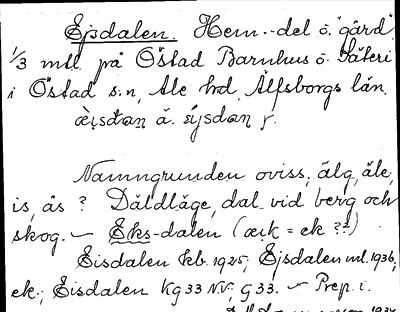 Ejsdalen. Hem.-del ö. "gård"
1/3 mtl på Östad Barnhus ö. Säteri
i Östad s:n, Ale hd, Älfsborgs län.
æisdan ă.
Namngrunden oviss, älg, åle,
is, ås? Däldläge, dal vid berg och
skog. – Eks-dalen (æik = ek ??)
Eisdalen kb. 1925; Ejsdalen ml. 1936,
ek.; Eisdalen KG 33 N.V.; G 33. – Prep. i.